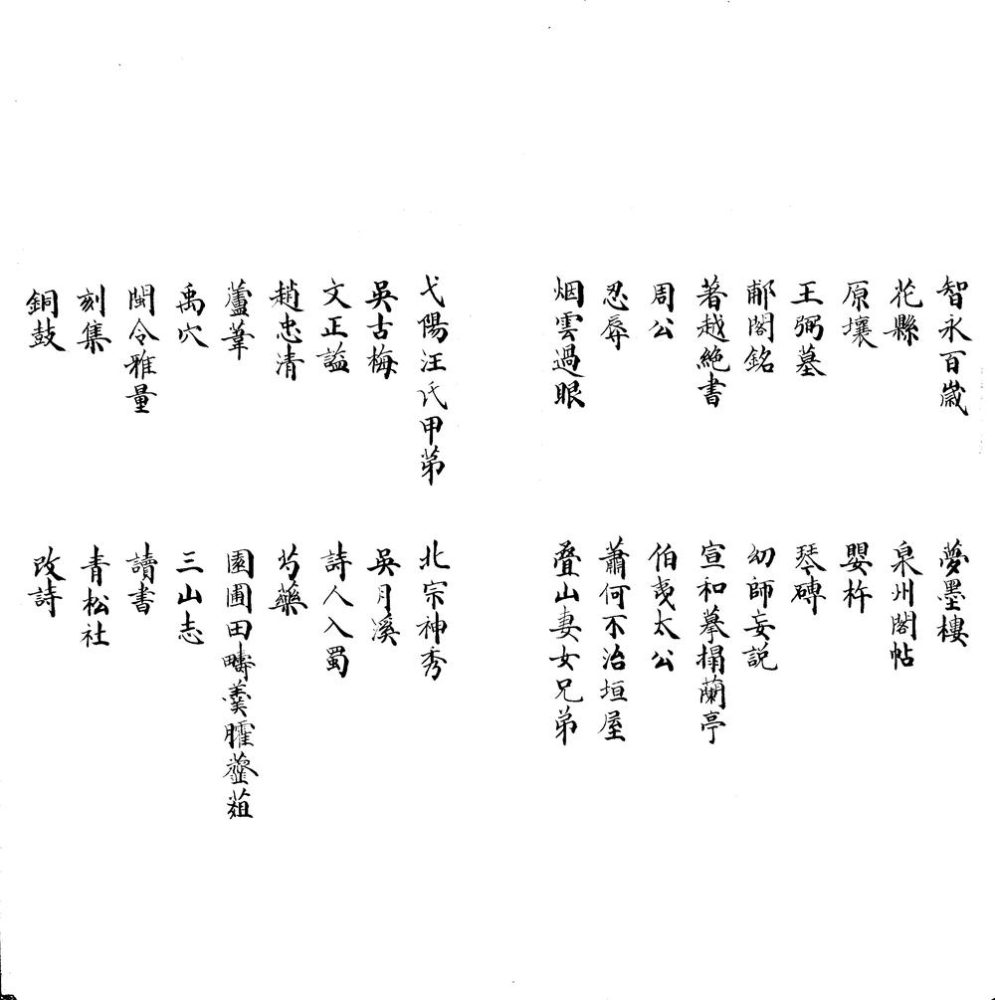 智永百歲
夢墨樓
花縣
泉州閣帖
原壤
嬰杵
王弼墓
琴磚
郙閣銘
幼師妄説
著越絶書
宣和摹搨蘭亭
周公
伯夷太公
忍辱
蕭何不治垣屋
烟雲過眼
疊山妻女兄弟
弋陽汪氏甲第
北宗神秀
吳古梅
吳月溪
文正謚
詩人入蜀
趙忠清
芍藥
蘆葦
園圃田疇羹臛虀葅
禹穴
三山志
閩令雅量
讀書
刻集
青松社
銅鼓
改詩